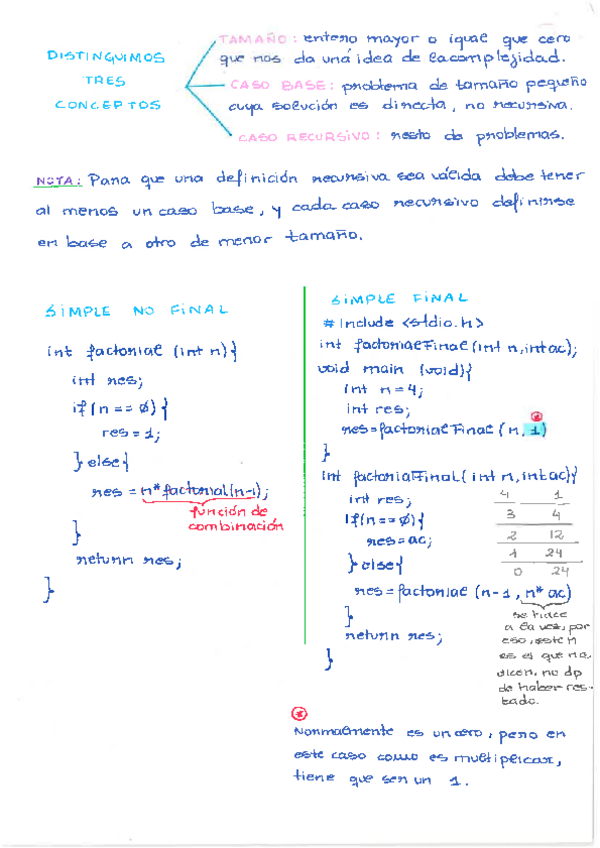 DISTINGUIMOS
TRES
CONCEPTOS
TAMAÑO: entero mayor o igual que cero
que nos da una idea de la complejidad.
CASO BASE: problema de tamaño pequeño
cuya solución es directa, no recursiva.
CASO RECURSIVO: resto de problemas.
NOTA: Para que una definición recursiva sea válida debe tener
al menos un caso base, y cada caso recursivo definirse
en base a otro de menor tamaño.
SIMPLE NO FINAL
int factorial (int n){
int res;
if(n == 0){
res = 1;
}else{
res = n*factorial(n-1);
función de
combinación
}
return res;
}
SIMPLE FINAL
#include <stdio.h>
int factorialFinal(int n,int ac);
void main (void){
int n=4;
int res;
res=factorialFinal(n,1)
}
int factorialFinal(int n,int ac){
int res;
if(n==0){
res=ac;
}else{
res=factorial(n-1,n*ac)
}
return res;
}
4 1
3 4
2 12
1 24
0 24
se hace
a la vez, por
eso, este n
es el que na.
dicen, no dp
de haber res-
tado.
Normalmente es un cero, pero en
este caso como es multiplicar,
tiene que ser un 1.